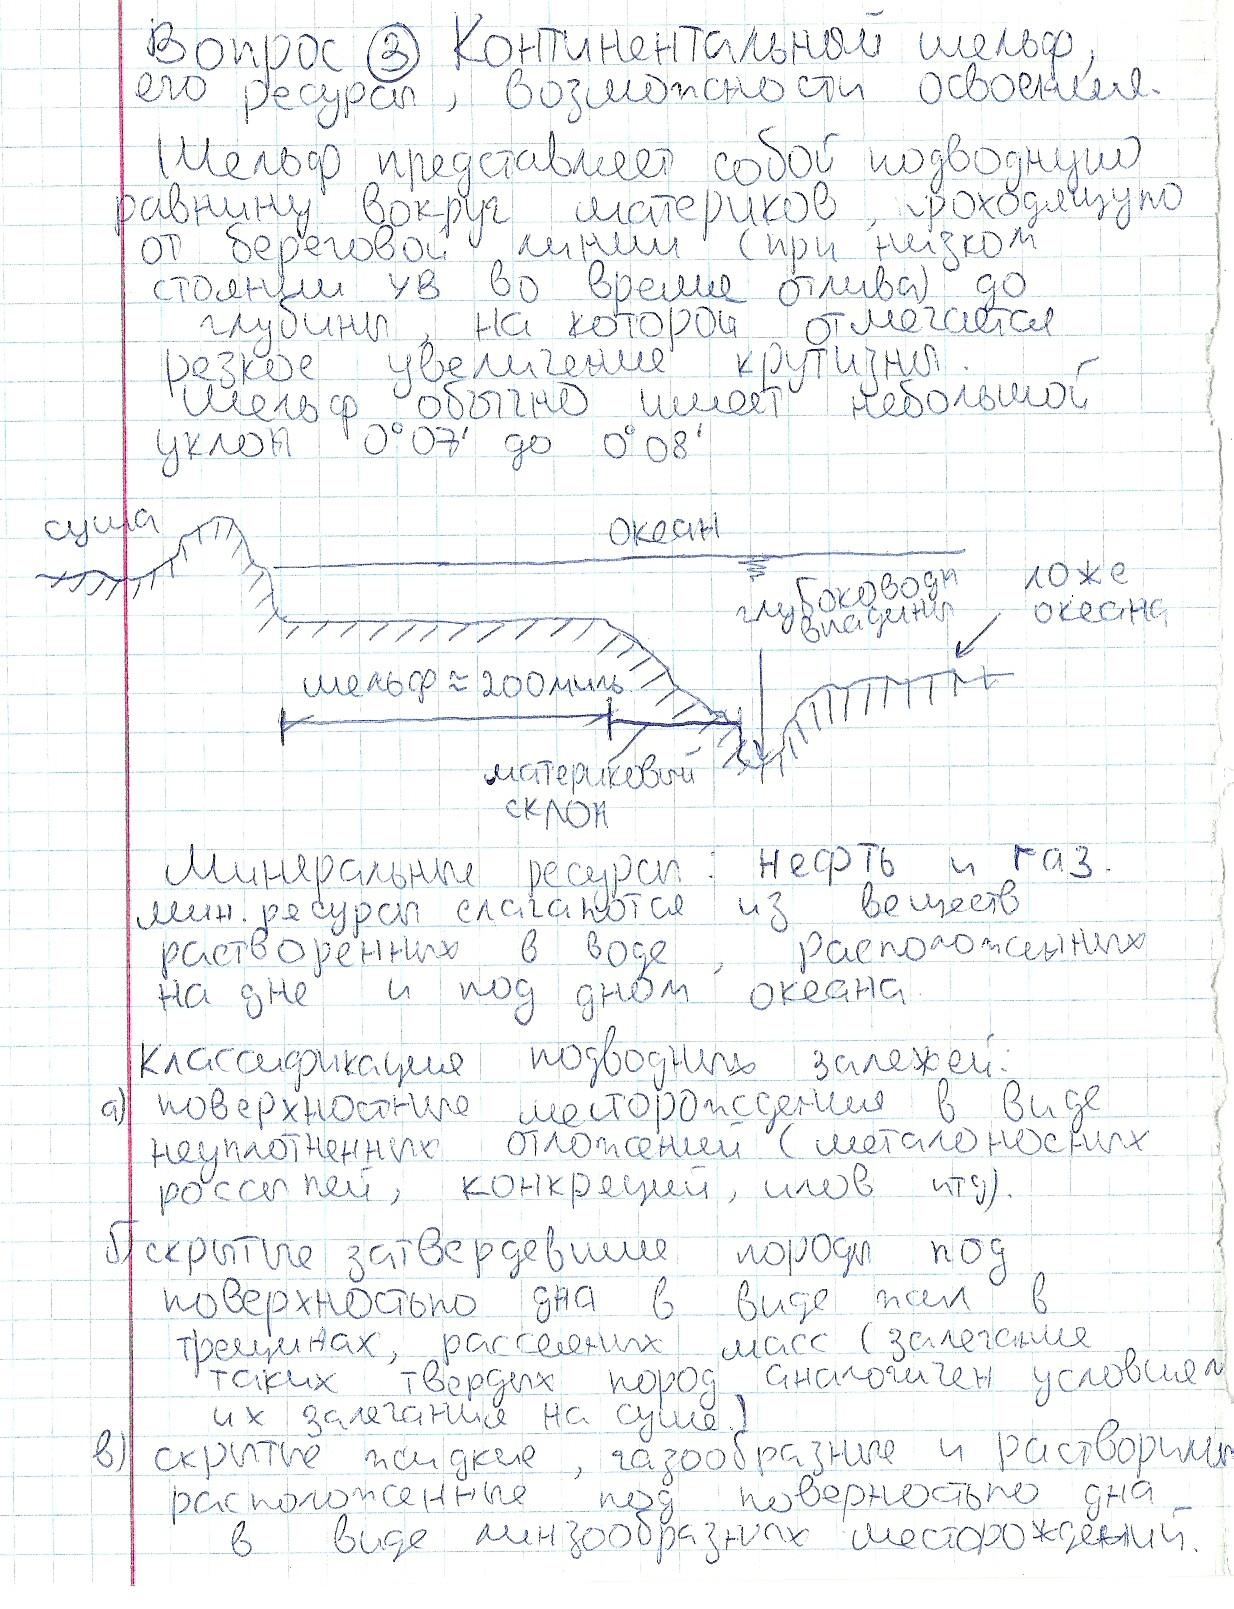 Вопрос 3 Континентальный шельф,
его ресурсы, возможности освоения.
Шельф представляет собой подводную
равнину вокруг материков, проходящую
от береговой линии (при низком
стоянии УВ во время отлива) до
глубины, на которой отмечается
резкое увеличение крутизны.
Шельф обычно имеет небольшой
уклон 0°07' до 0°08'
суша
океан
глубоководн
впадины
ложе
океана
шельф ≈ 200 миль
материковый
склон
Минеральные ресурсы: нефть и газ.
мин. ресурсы слагаются из веществ
растворенных в воде, расположенных
на дне и под дном океана.
Классификация подводных залежей:
а) поверхностные месторождения в виде
неуплотненных отложений (металоносных
россыпей, конкреций, илов итд).
б) скрытые затвердевшие породы под
поверхностью дна в виде жил в
трещинах, рассеяных масс (залегание
таких твердых пород аналогичен условиям
их залегания на суше)
в) скрытые жидкие, газообразные и растворимые
расположенные под поверностью дна
в виде линзообразных месторождений.